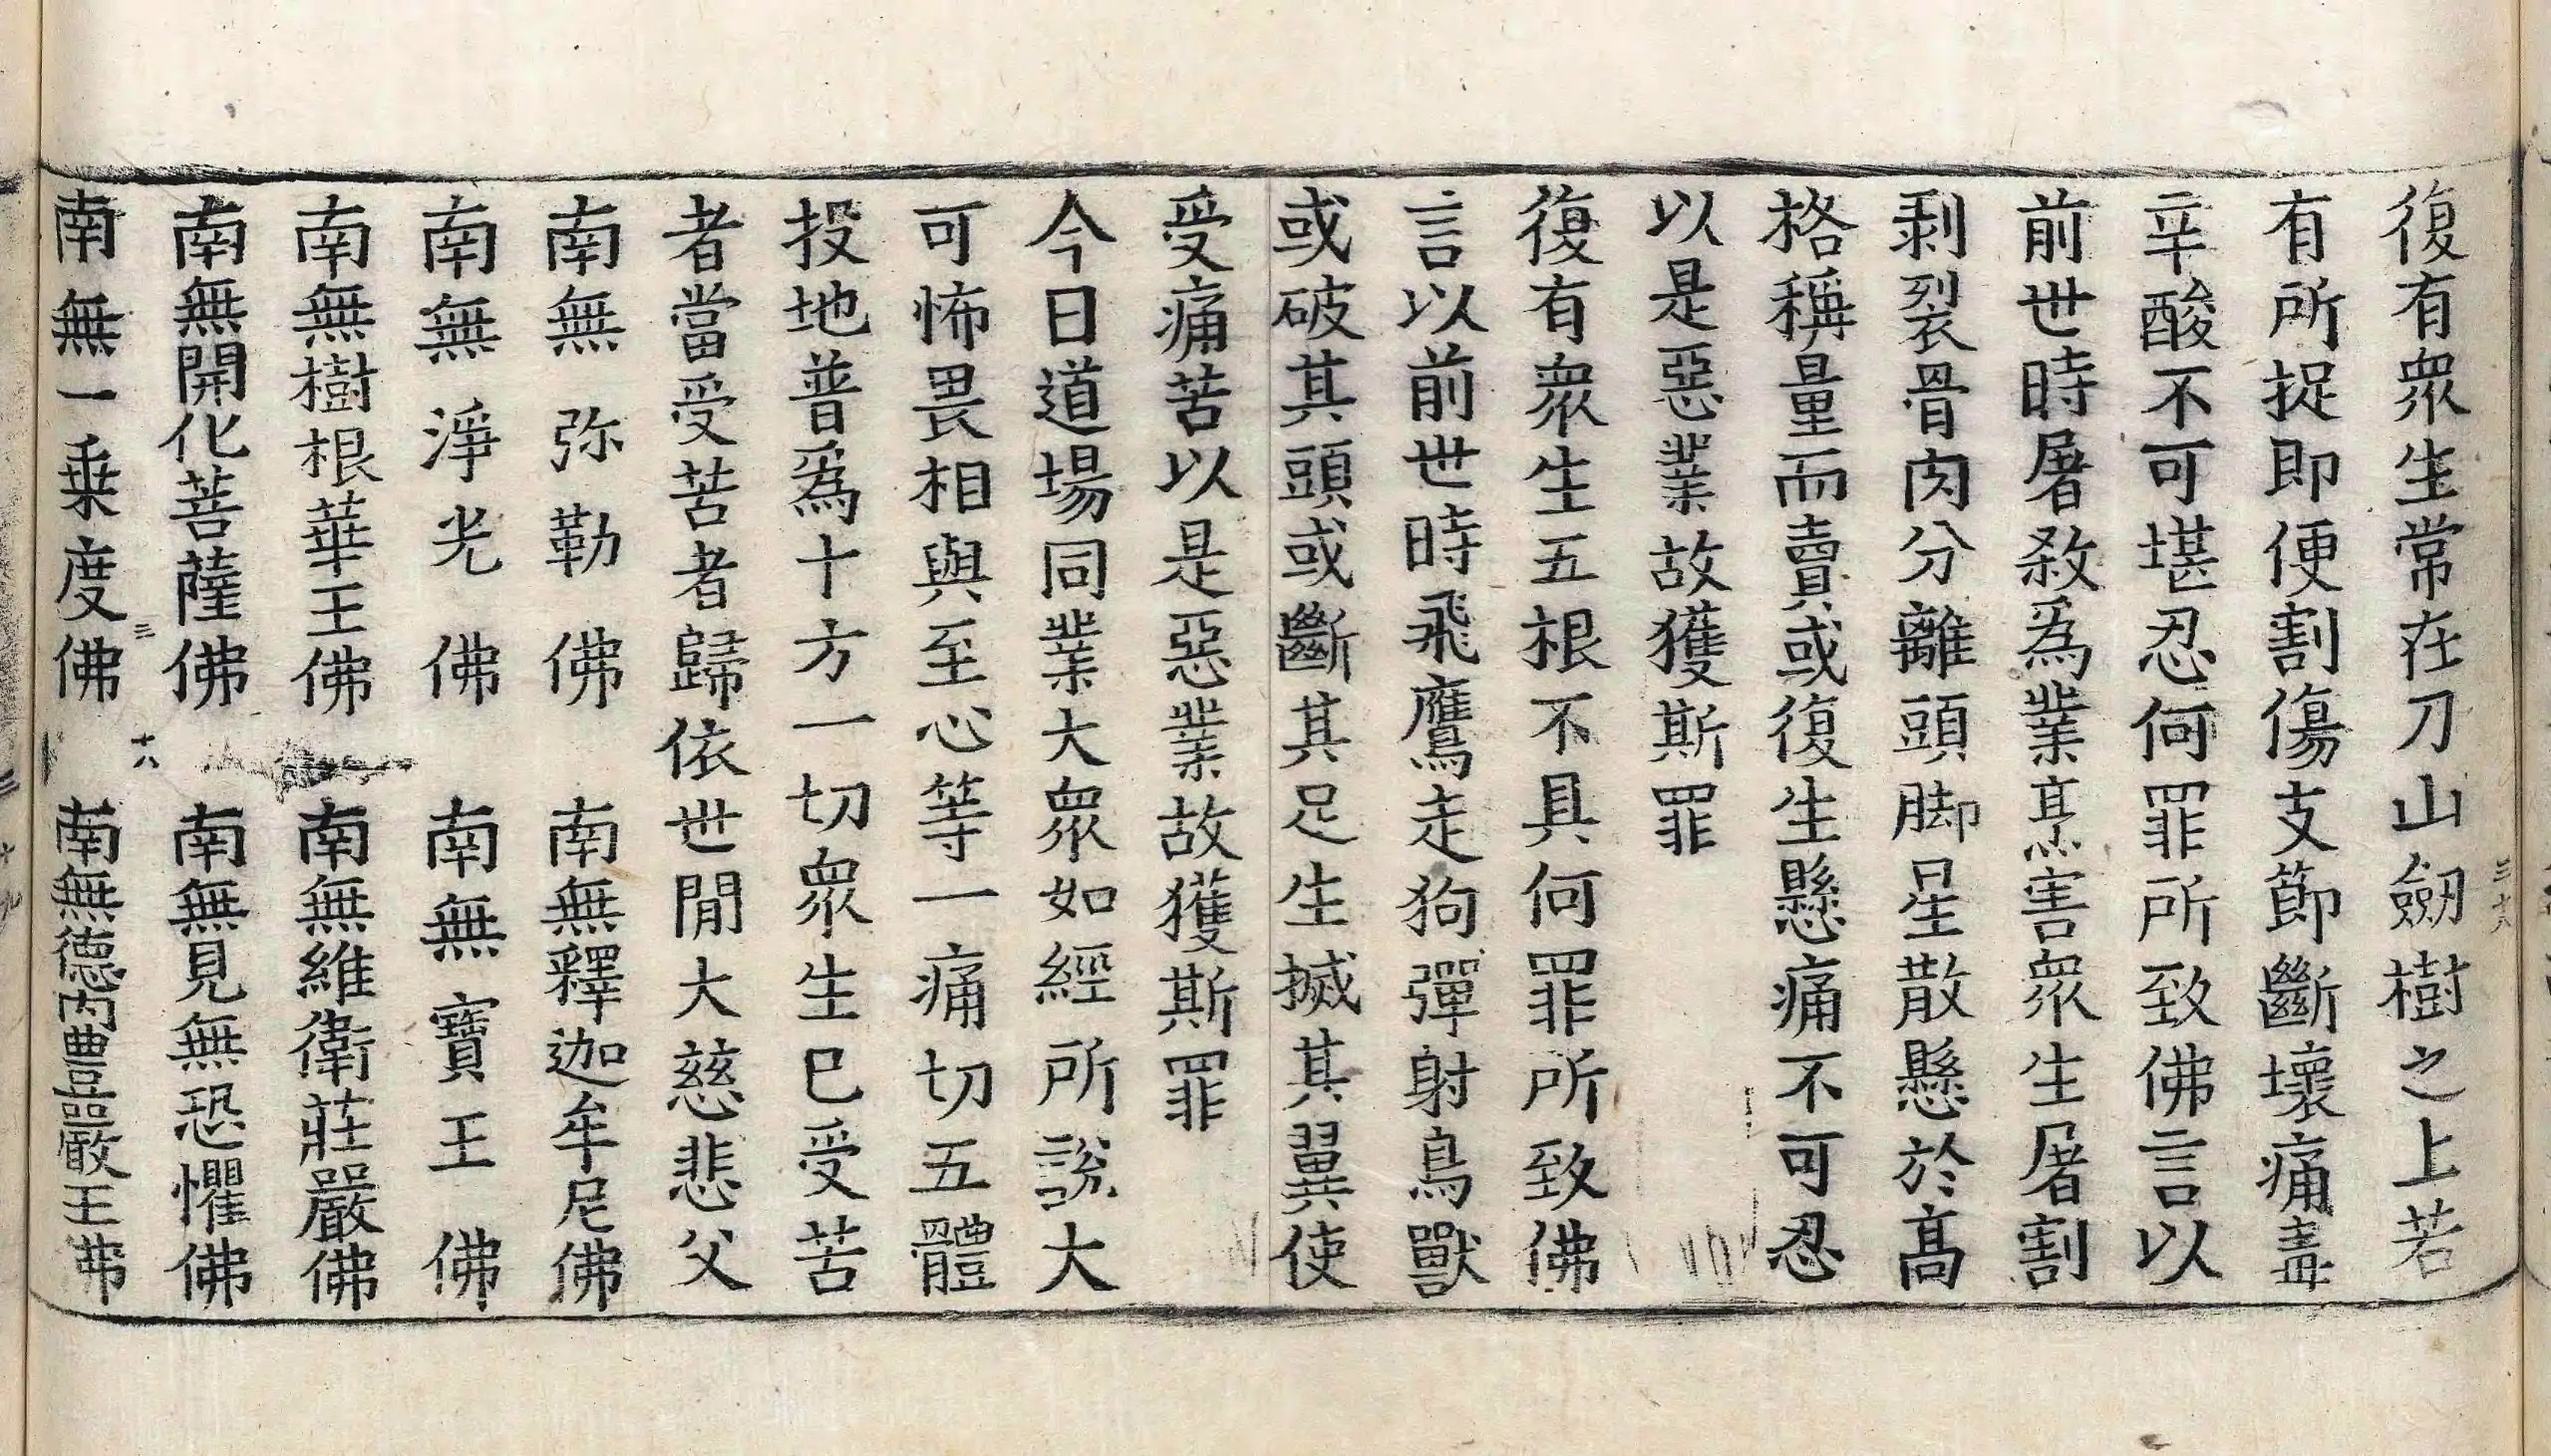 復有眾生常在刀山劒樹之上若
有所捉即便割傷支節斷壞痛毒
辛酸不可堪忍何罪所致佛言以
前世時屠殺爲業烹害眾生屠割
剥裂骨肉分離頭脚星散懸於髙
格稱量而賣或復生懸痛不可忍
以是惡業故獲斯罪
復有眾生五根不具何罪所致佛
言以前世時飛鷹走狗彈射鳥獸
或破其頭或斷其足生搣其翼使
受痛苦以是惡業故獲斯罪
今日道場同業大眾如經所說大
可怖畏相與至心等一痛切五體
投地普爲十方一切眾生已受苦
者當受苦者歸依世間大慈悲父
南無弥勒佛 南無釋迦牟尼佛
南無淨光佛 南無寶王佛
南無樹根華王佛 南無維衛莊嚴佛
南無開化菩薩佛 南無見無恐懼佛
三 十八
南無一乗度佛 南無德内豐嚴王佛